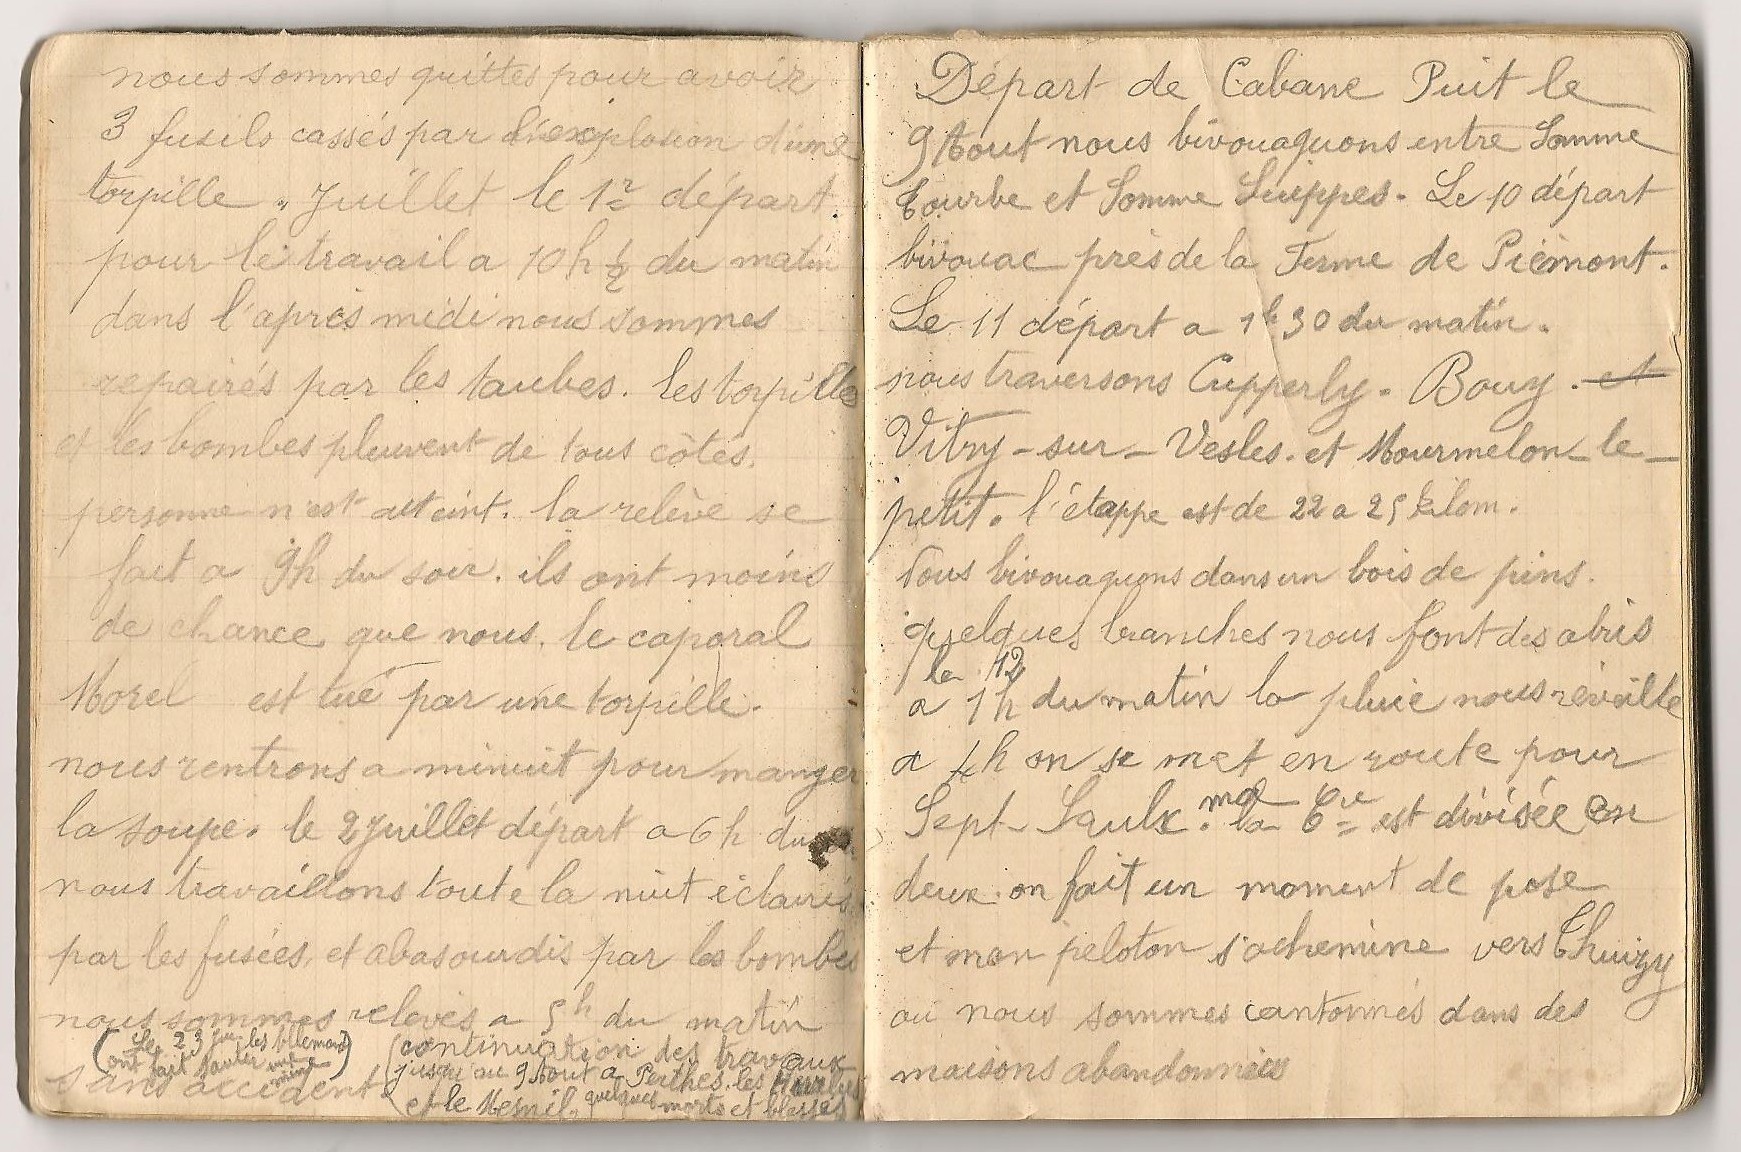 nous sommes quittes pour avoir
3 fusils cassés par l'explosion d'une
torpille. Juillet le 1r départ
pour le travail a 10 h 1/2 du matin
dans l'aprés midi nous sommes
repairés par les taubes. les torpilles
et les bombes pleuvent de tous côtés.
personne n'est atteint. la relève se
fait a 9h du soir. ils ont moins
de chance que nous. le caporal
Morel est tué par une torpille.
nous rentrons a minuit pour manger
la soupe. le 2 Juillet départ a 6 h du
nous travaillons toute la nuit éclairés
par les fusées, et abasourdis par les bombes
nous sommes relevés a 5h du matin
sans accident
(Le 23 les Allemands
ont fait sauter une
mine)
(continuation des travaux
jusqu'au 9 Aout a Perthes. les Hurlus
et le Mesnil. quelques morts et blessés
Départ de Cabane Puit le
9 Aout nous bivouaquons entre Somme
Tourbe et Somme Suippes. Le 10 départ
bivouac près de la Ferme de Piémont.
Le 11 départ a 1h30 du matin.
nous traversons Cupperly. Bouy. et
Vitry-sur-Vesles. et Mourmelon-le-
petit. l'étappe est de 22 a 25 kilom.
Nous bivouaquons dans un bois de pins.
quelques branches nous font des abris
le 12
a 1h du matin la pluie nous réveille
a 4h on se met en route pour
Sept-Saulx. ma la Cie est divisée en
deux. on fait un moment de pose
et mon peloton s'achemine vers Thuizy
ou nous sommes cantonnés dans des
maisons abandonnées